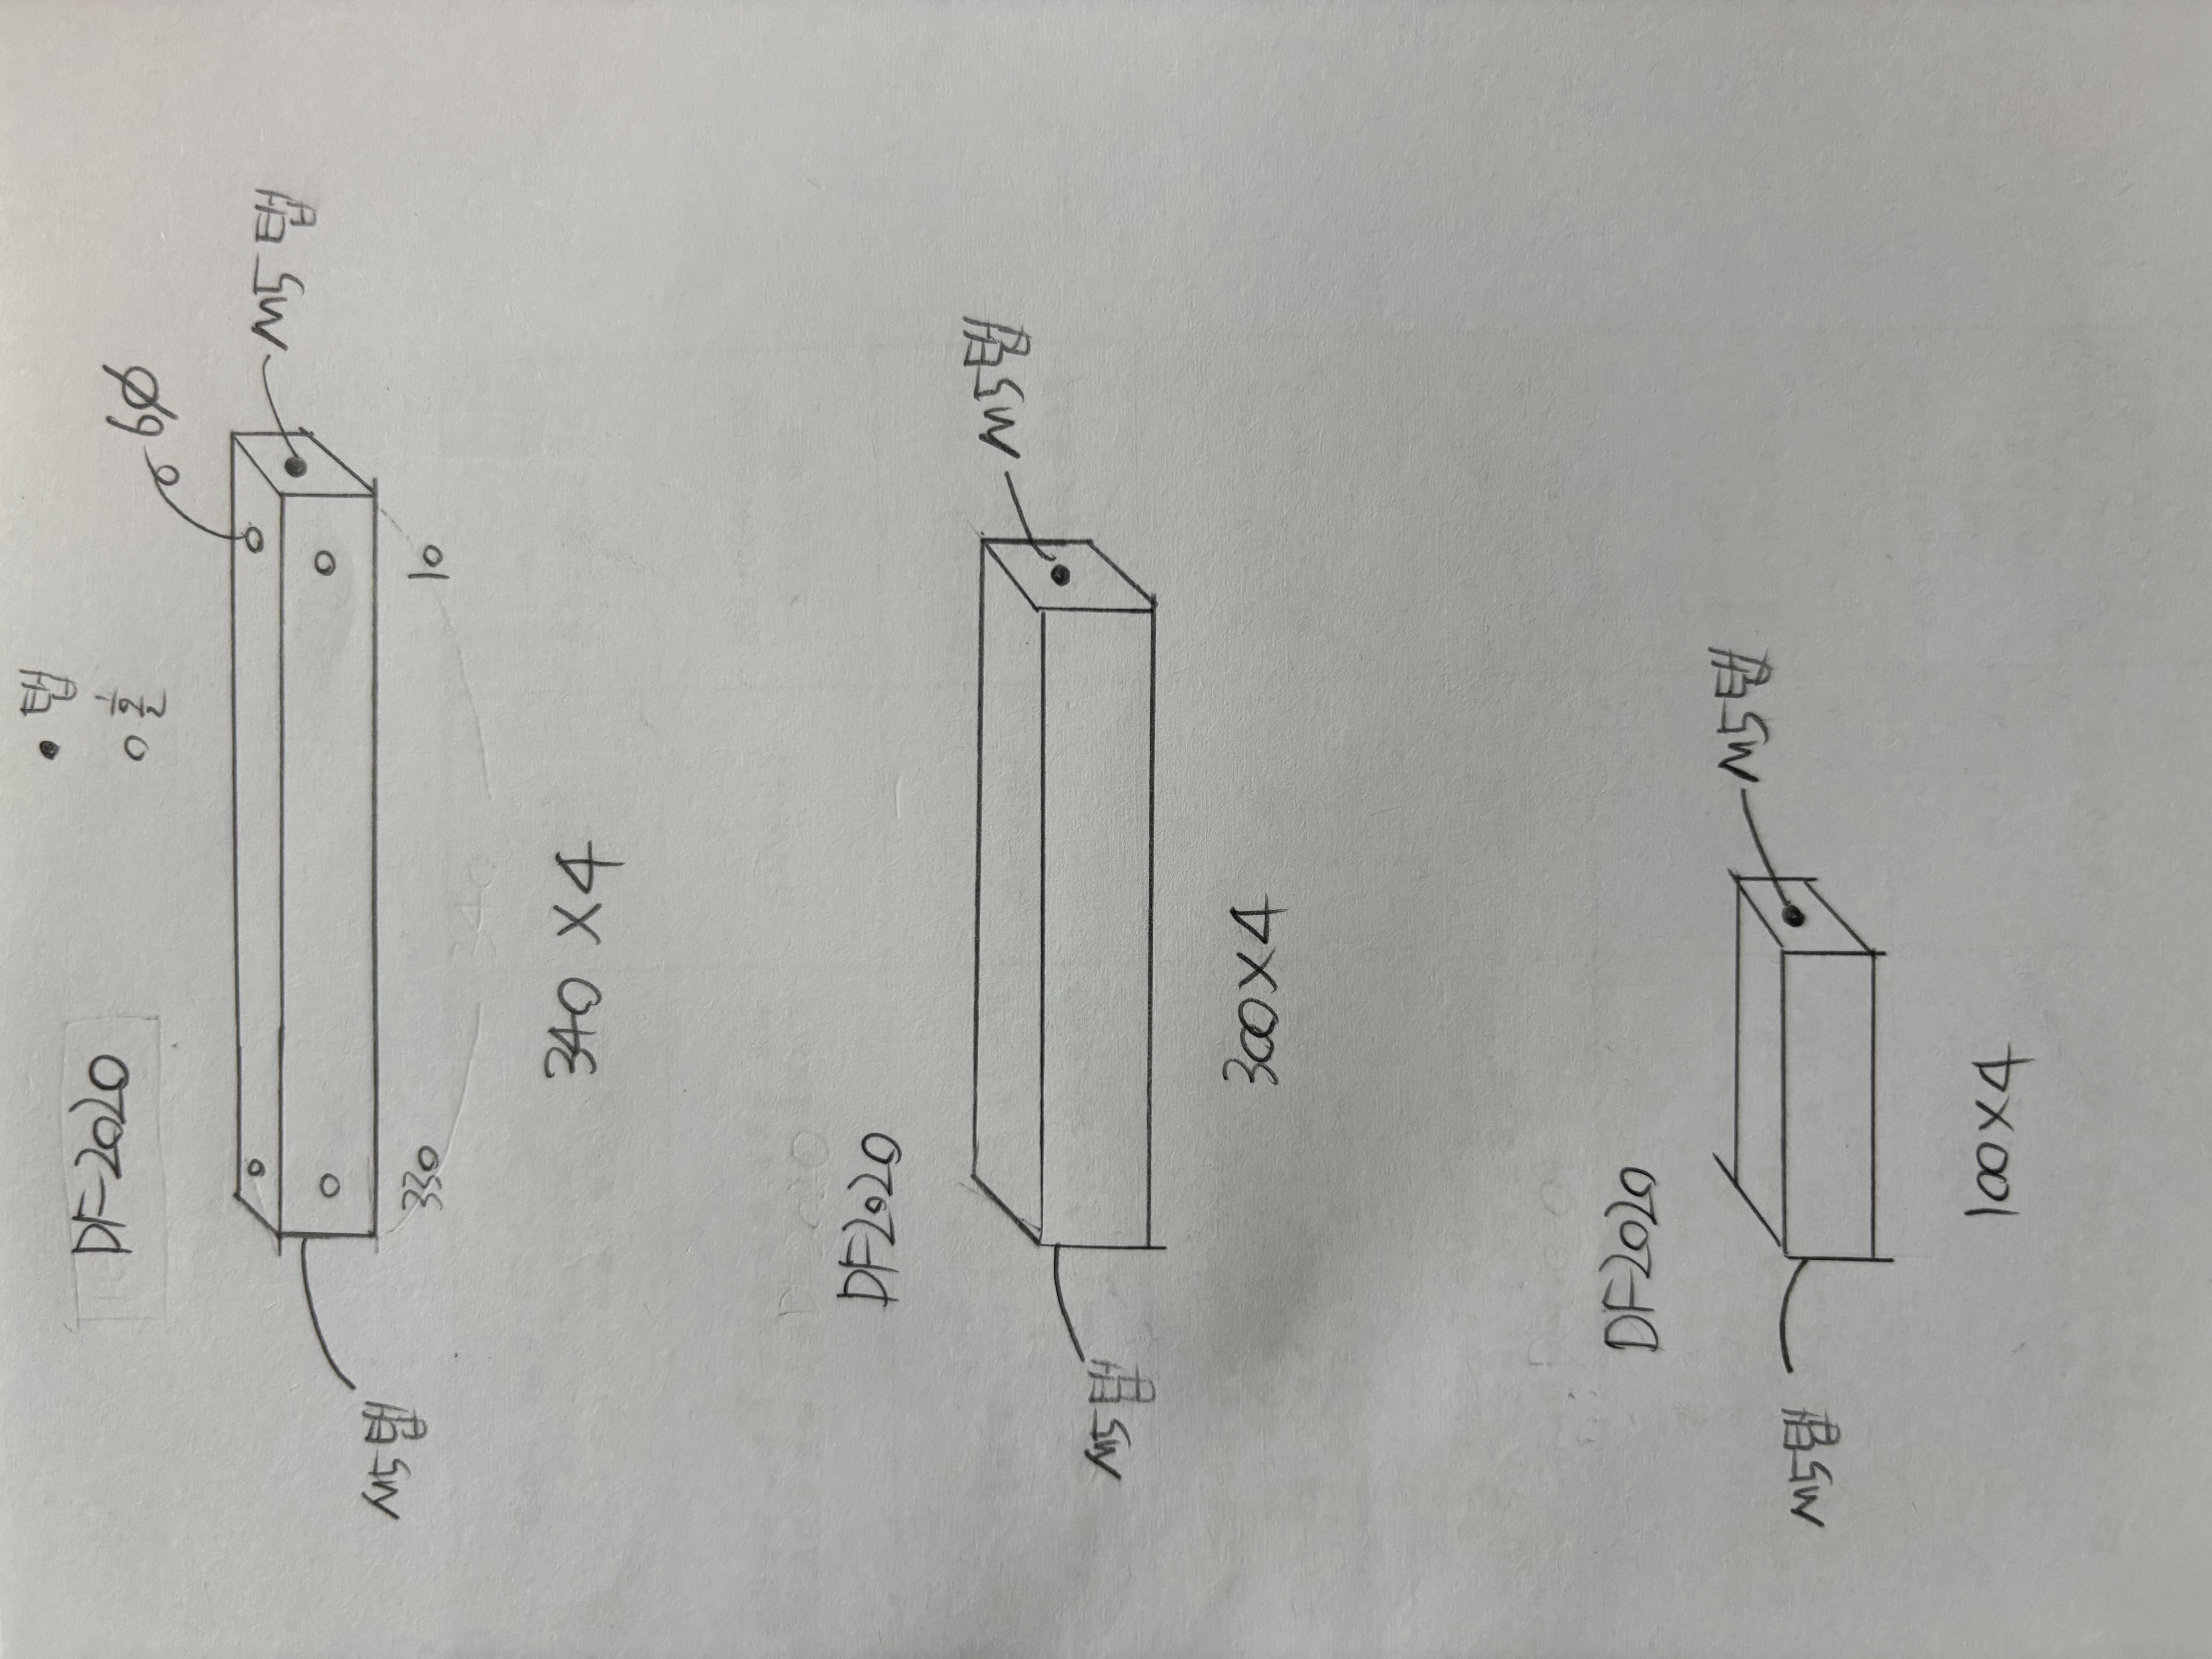 DF-2020
• 탭
○ 홀
6Ø
M5 탭
M5탭
330
10
340
340 X 4
DF2020
M5탭
M5탭
300X4
DF2020
M5탭
M5탭
100X4